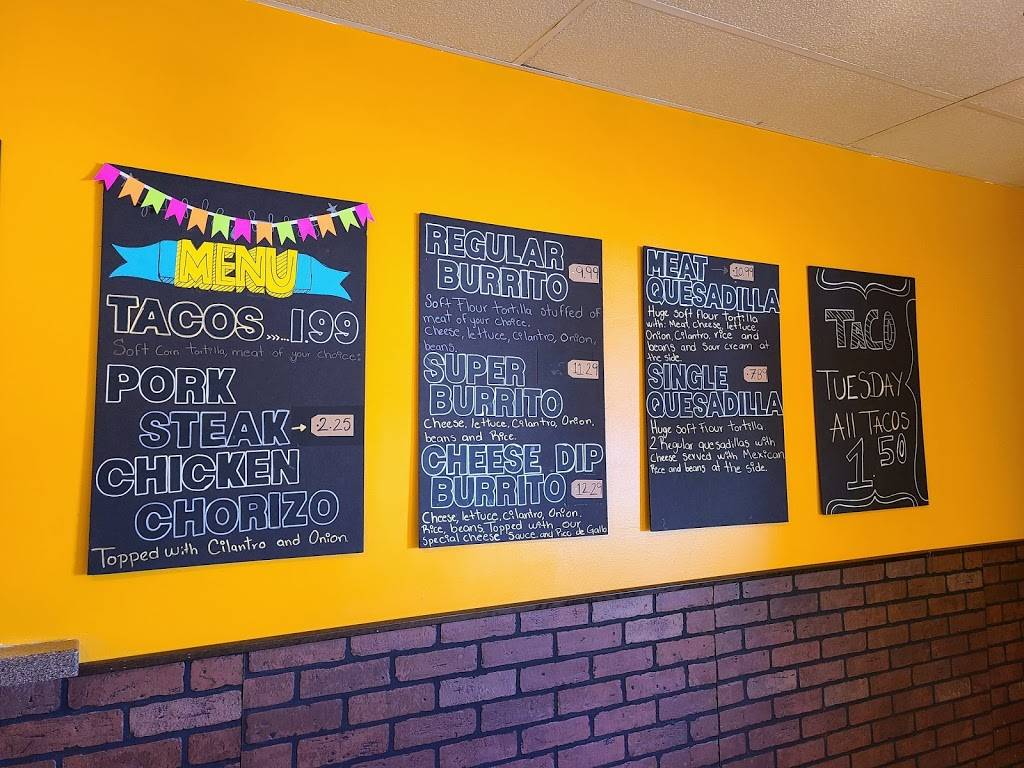 MENU
TACOS...1.99
Soft Corn tortilla, meat of your choice:
PORK
STEAK → 2.25
CHICKEN
CHORIZO
Topped with Cilantro and Onion
REGULAR
BURRITO 9.99
Soft Flour tortilla stuffed of
meat of your choice.
Cheese, lettuce, Cilantro, Onion,
beans.
SUPER 11.29
BURRITO
Cheese, lettuce, Cilantro, Onion,
beans and Rice.
CHEESE DIP
BURRITO 12.29
Cheese, lettuce, Cilantro, Onion.
Rice, beans, Topped with our
Special cheese Sauce and Pico de Gallo
MEAT → 10.99
QUESADILLA
Huge Soft Flour tortilla
with: Meat, cheese, lettuce,
Onion, Cilantro, rice and
beans and Sour cream at
the side.
SINGLE 7.89
QUESADILLA
Huge Soft Flour tortilla
2 Regular quesadillas with
Cheese served with Mexican
Rice and beans at the side.
TACO
TUESDAY
All TACOS
1 50